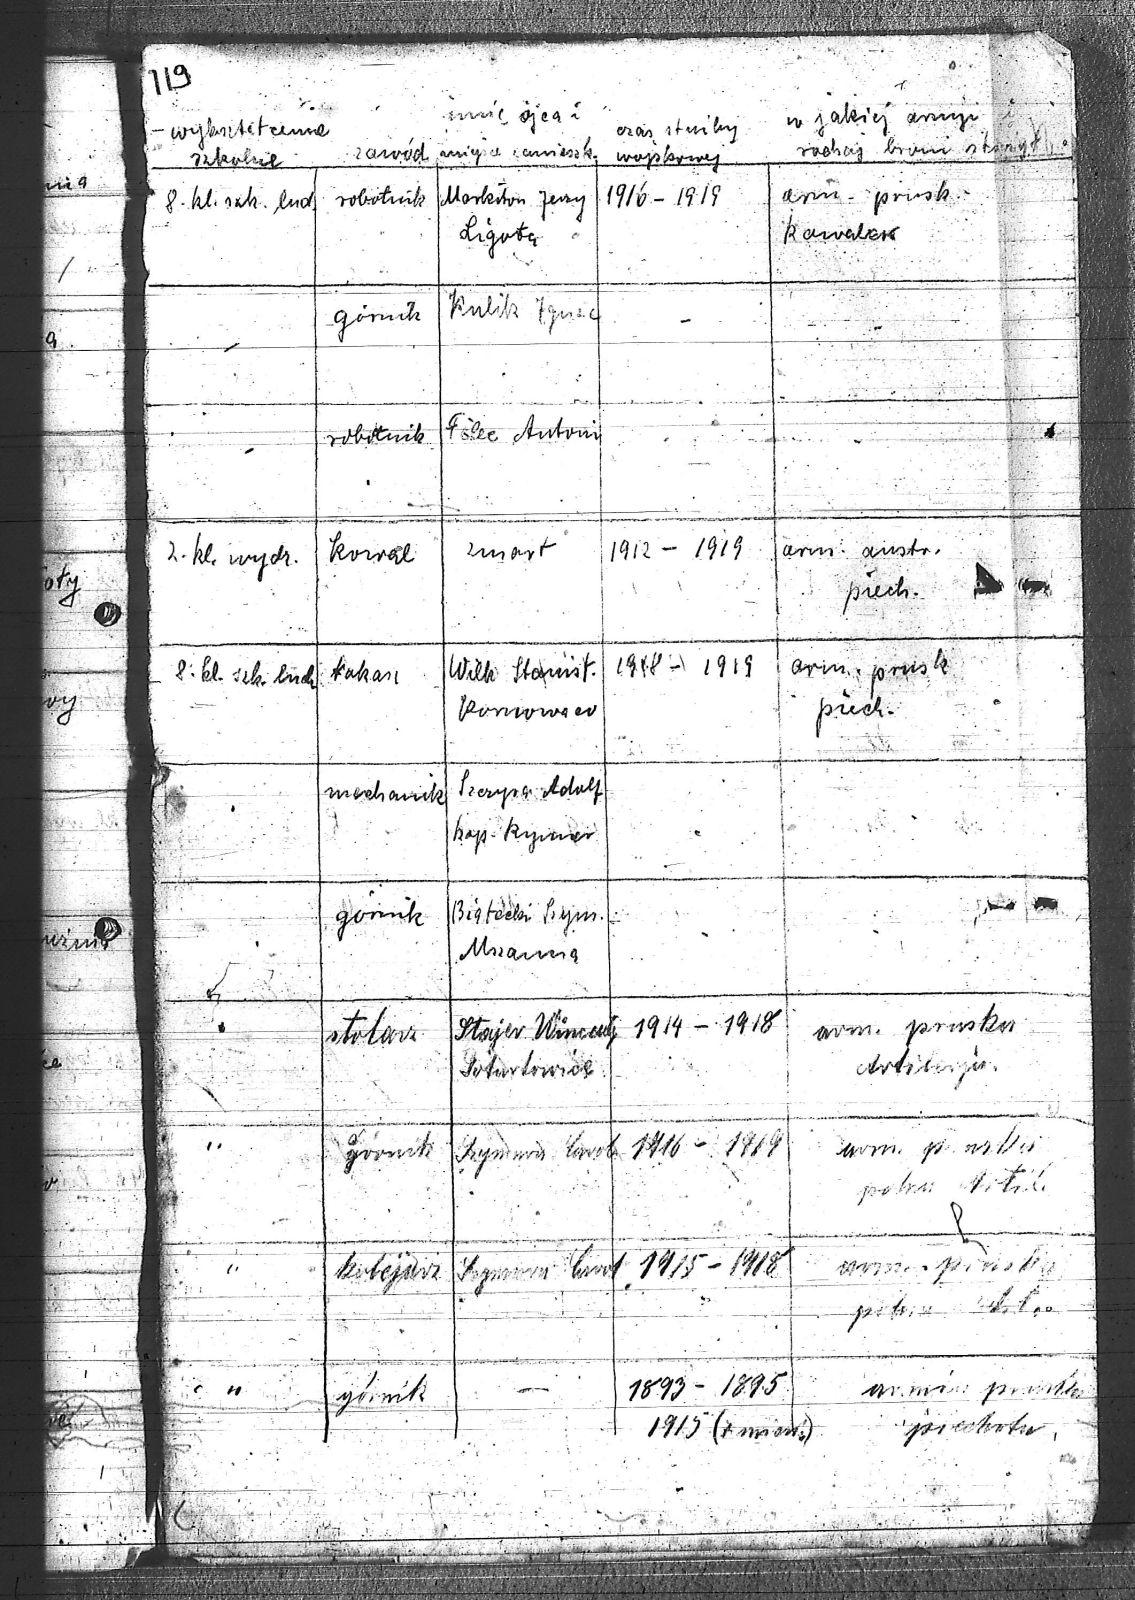 119
wykształcenie szkolne
zawód
imię ojca i miejsce zamieszk.
czas służby wojskowej
w jakiej armji i rodzaj broni służył
8. kl. szk. lud. robotnik Markiton Jerzy 1916 - 1919 arm. prusk.
Ligota
górnik Kulik Ignac -
robotnik Antoni
2. kl. wydz. kowal zmart 1912 - 1919 arm. austr.
piech.
8. kl. szk. lud. Wilk Stanist. 1918 - 1919 arm. prusk
piech.
mechanik Adolf
kop. Rymer
górnik Białecki Szym.
Mszanna
stolarz Stajer Wincenty 1914 - 1918 arm. pruska
Artilerja.
" górnik Szymura Carol 1916 - 1919 arm. pruska
polna
" kolejarz Szymura Carol 1915 - 1918 arm. pruska
polna
" górnik — 1893 - 1895 pruska
1915 piechota